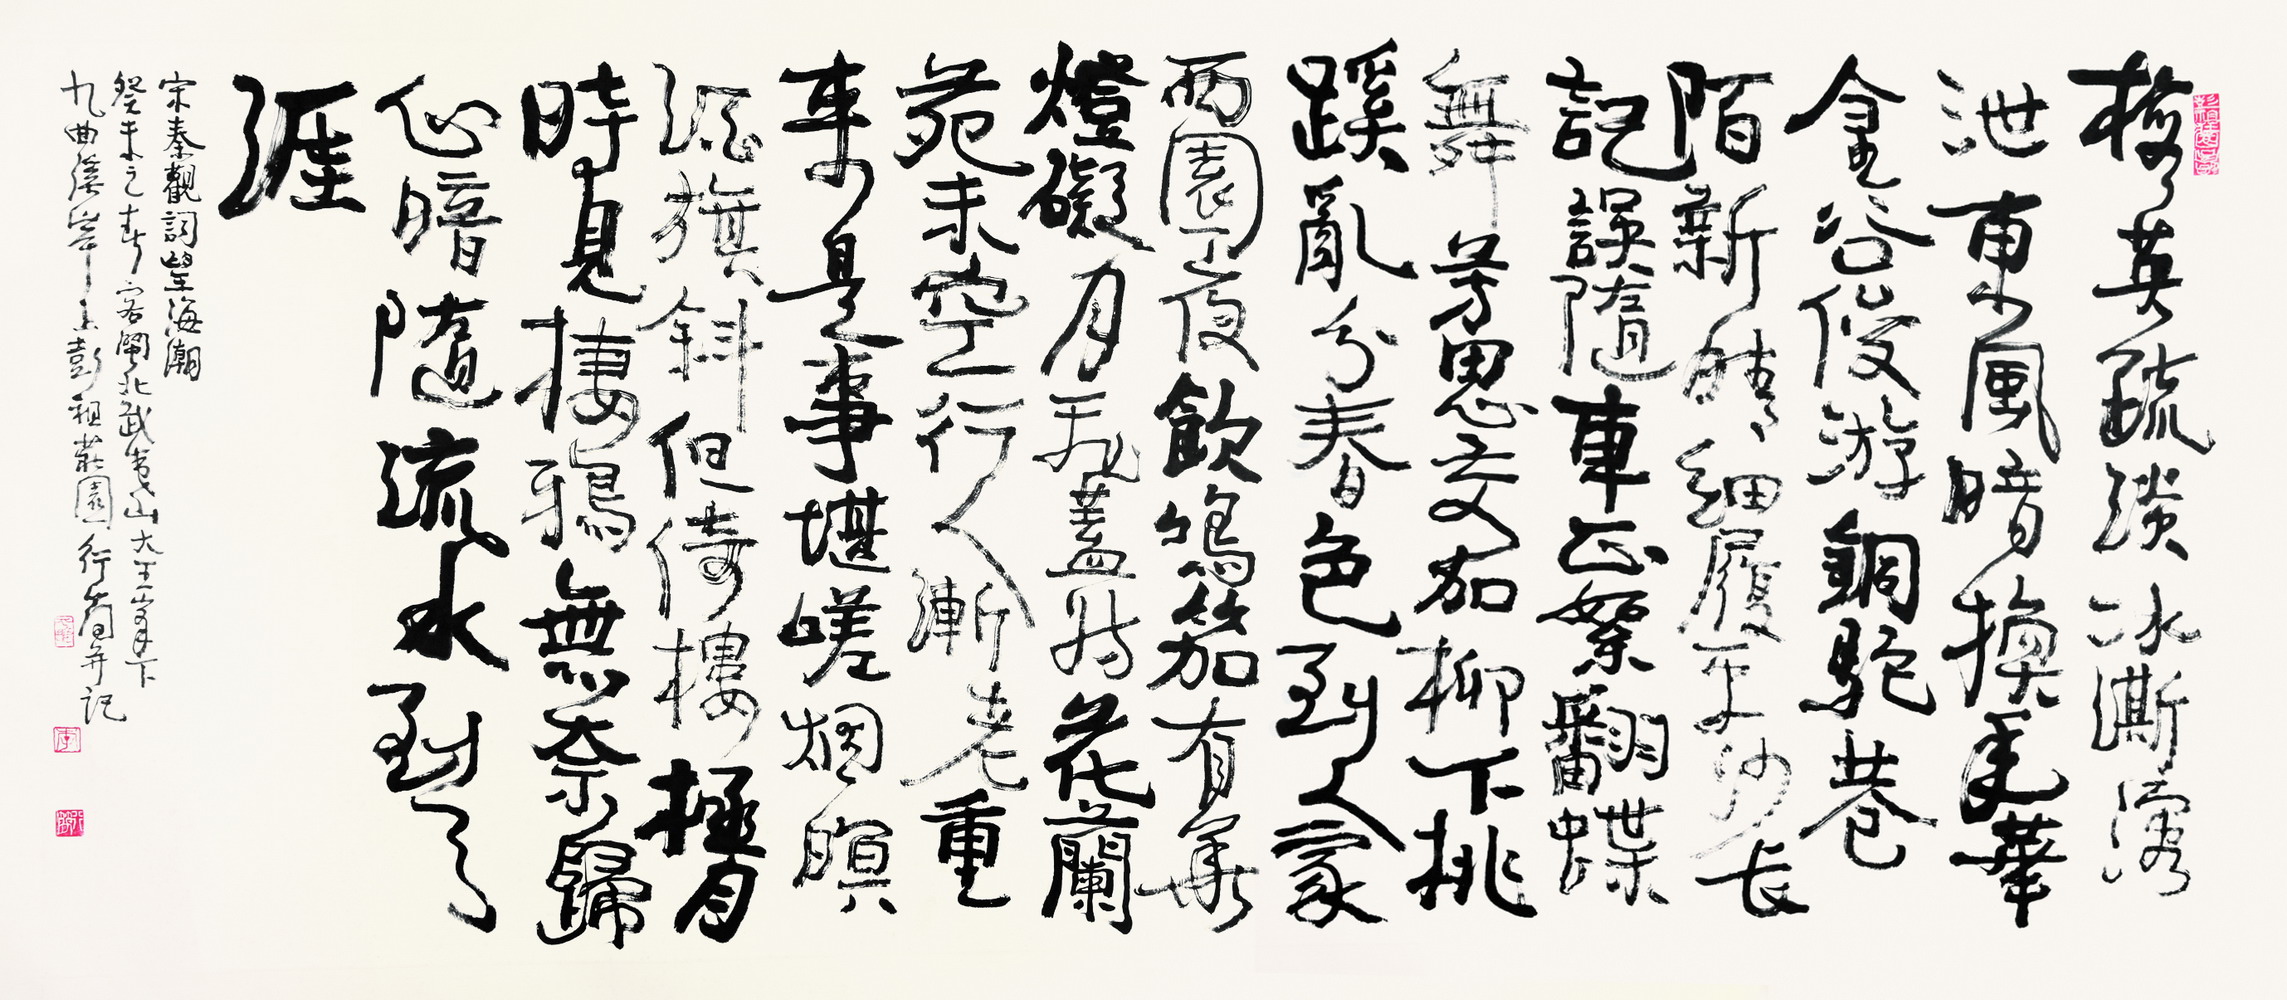 梅英疏淡冰澌溶
泄東風暗換年華
金谷俊游銅駝巷
陌新晴細履平沙长
記誤隨車正絮翻蝶
舞芳思交加柳下桃
蹊亂分春色到人家
西園夜飲鳴笳有華
燈礙月飛蓋妨花蘭
苑未空行人漸老重
來是事堪嗟烟暝
酒旗斜但倚樓極目
時見棲鴉無奈歸
心暗隨流水到天
涯
宋秦觀詞望海潮
癸未之春客閩北武夷山大王峯下
九曲溪岸上彭祖莊園行草并記